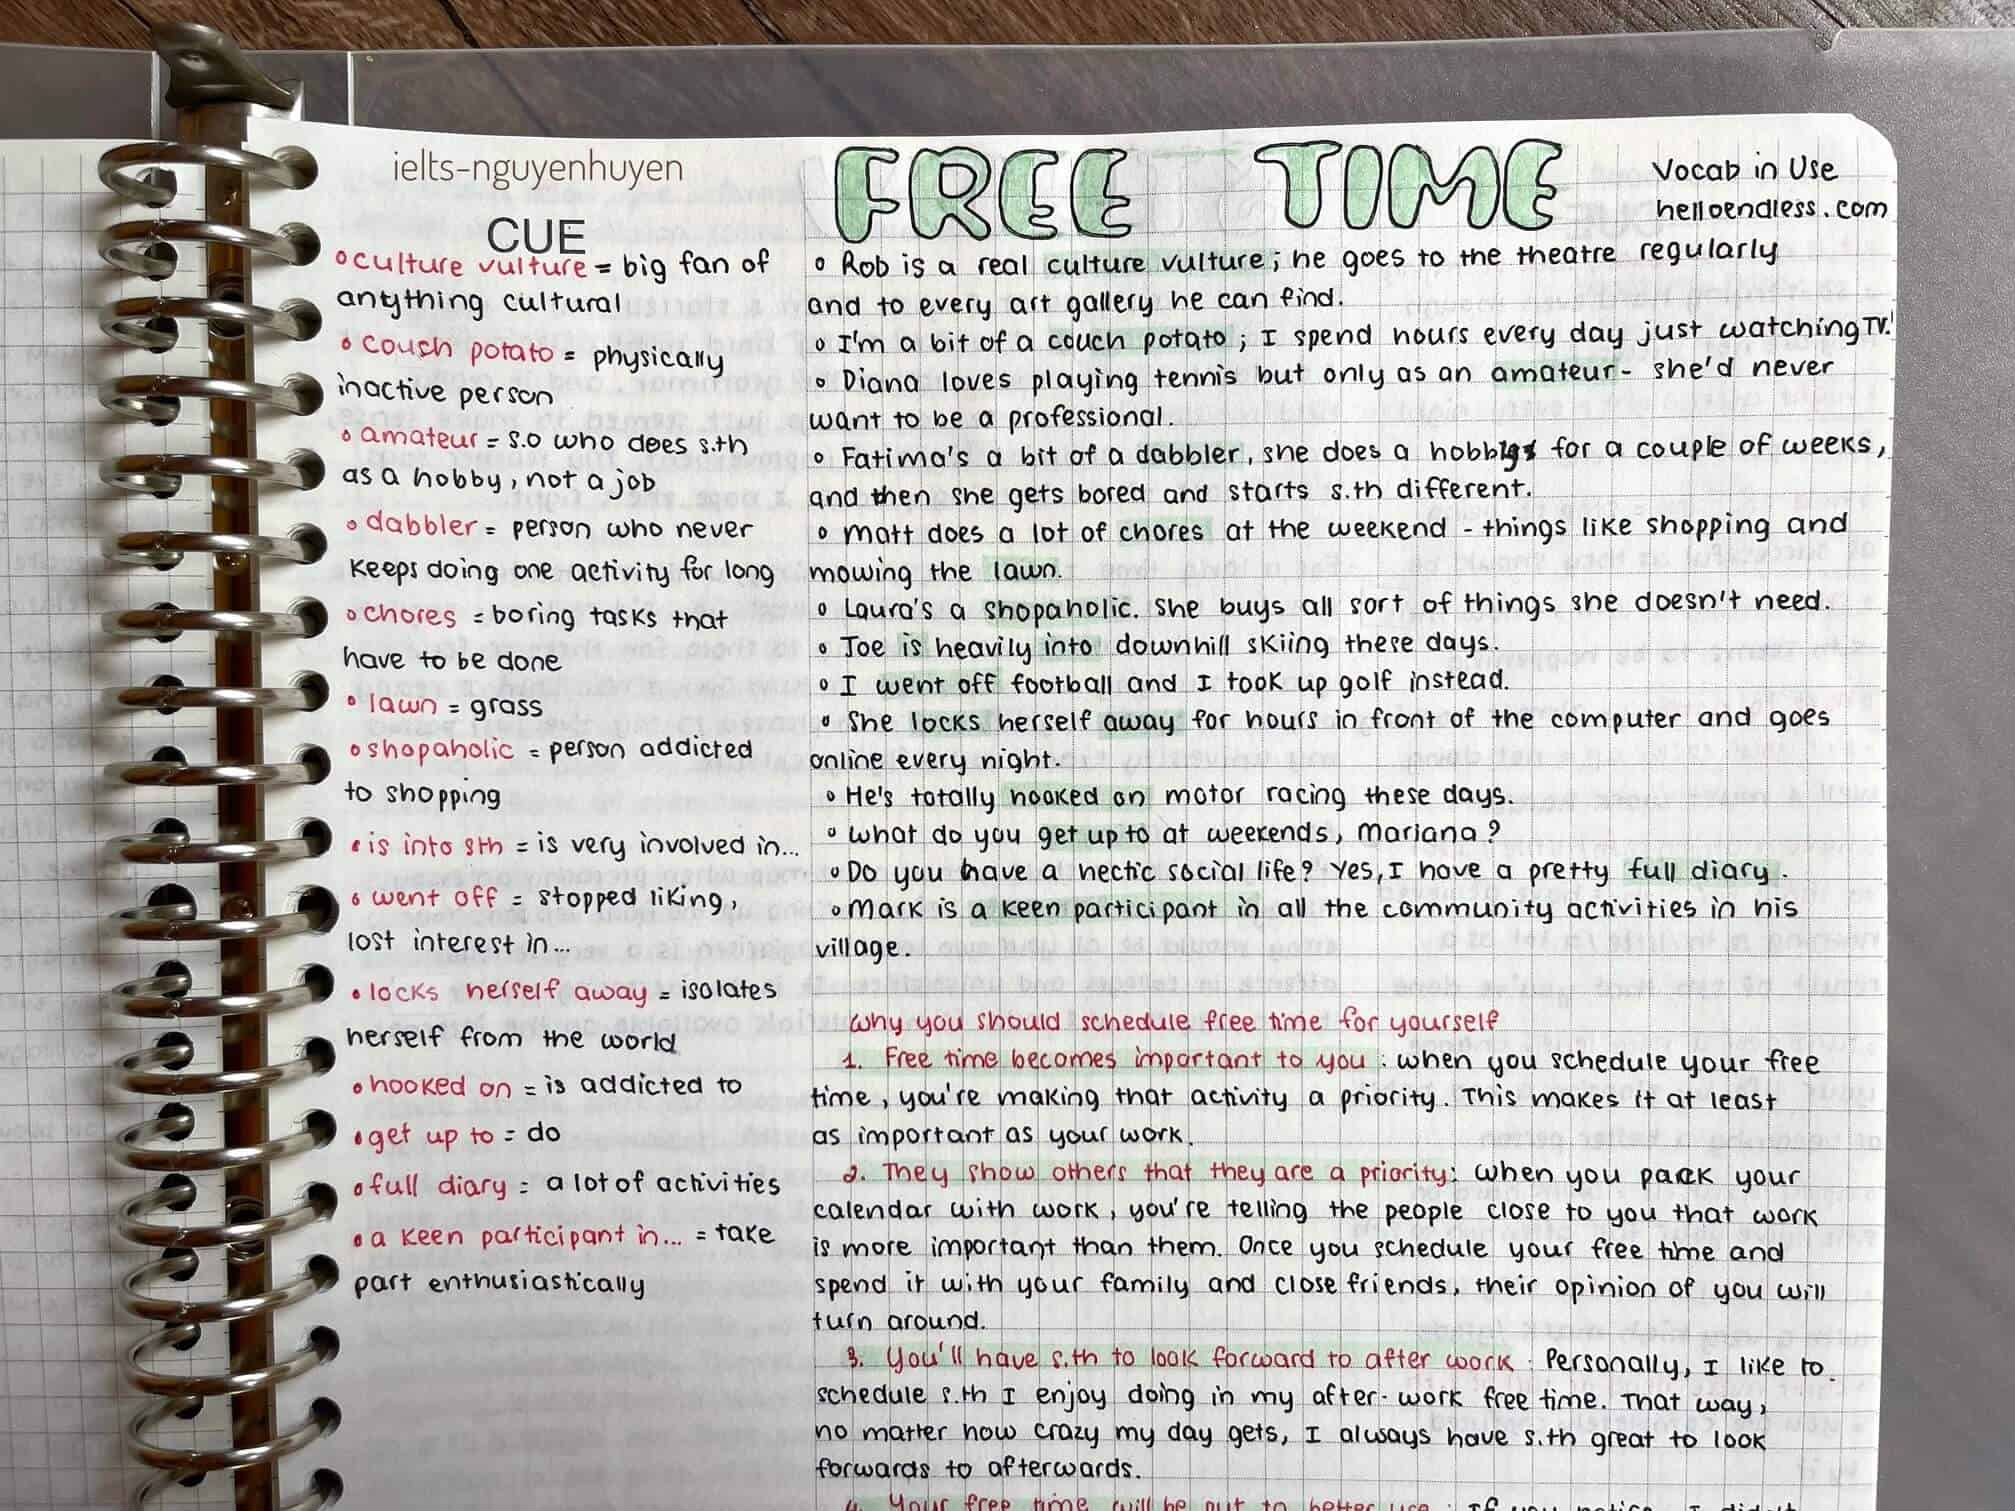 ielts-nguyenhuyen
CUE
culture vulture = big fan of
anything cultural
couch potato = physically
inactive person
amateur = s.o who does s.th
as a hobby, not a job
dabbler = person who never
keeps doing one activity for long
chores = boring tasks that
have to be done
lawn = grass
shopaholic = person addicted
to shopping
is into sth = is very involved in...
went off = stopped liking,
lost interest in...
locks herself away = isolates
herself from the world
hooked on = is addicted to
get up to = do
full diary = a lot of activities
a keen participant in... = take
part enthusiastically
FREE TIME
Vocab in Use
helloendless.com
Rob is a real culture vulture; he goes to the theatre regularly
and to every art gallery he can find.
I'm a bit of a couch potato; I spend hours every day just watching TV.
Diana loves playing tennis but only as an amateur - she'd never
want to be a professional.
Fatima's a bit of a dabbler, she does a hobby for a couple of weeks,
and then she gets bored and starts s.th different.
Matt does a lot of chores at the weekend - things like shopping and
mowing the lawn.
Laura's a shopaholic. She buys all sort of things she doesn't need.
Joe is heavily into downhill skiing these days.
I went off football and I took up golf instead.
She locks herself away for hours in front of the computer and goes
online every night.
He's totally hooked on motor racing these days.
What do you get up to at weekends, Mariana?
Do you have a hectic social life? Yes, I have a pretty full diary.
Mark is a keen participant in all the community activities in his
village.
Why you should schedule free time for yourself
1. Free time becomes important to you: when you schedule your free
time, you're making that activity a priority. This makes it at least
as important as your work.
2. They show others that they are a priority: when you pack your
calendar with work, you're telling the people close to you that work
is more important than them. Once you schedule your free time and
spend it with your family and close friends, their opinion of you will
turn around.
3. You'll have s.th to look forward to after work: Personally, I like to
schedule s.th I enjoy doing in my after-work free time. That way,
no matter how crazy my day gets, I always have s.th great to look
forwards to afterwards.
4. Your free time will be put to better use: If you notice, I didn't